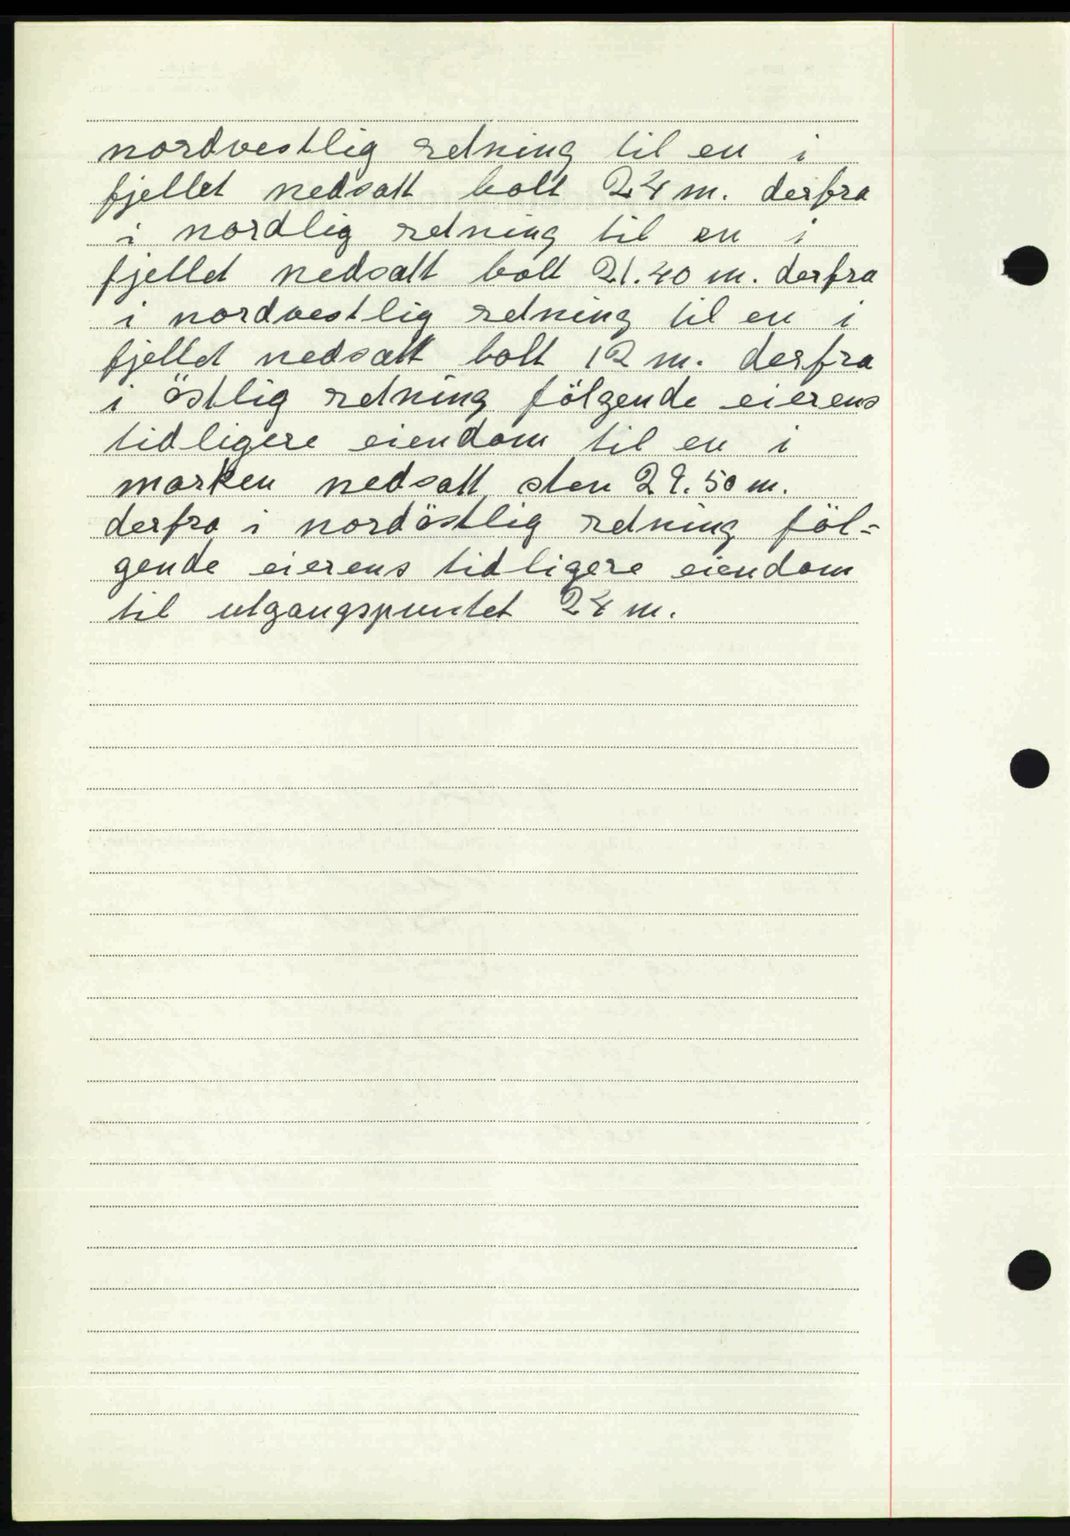 nordvestlig retning til en i
fjellet nedsatt bolt 24 m. derfra
i nordlig retning til en i
fjellet nedsatt bolt 21.40 m. derfra
i nordvestlig retning til en i
fjellet nedsatt bolt 12 m. derfra
i östlig retning fölgende eierens
tidligere eiendom til en i
marken nedsatt sten 29.50 m.
derfra i nordöstlig retning föl=
gende eierens tidligere eiendom
til utgangspuntet 24 m.